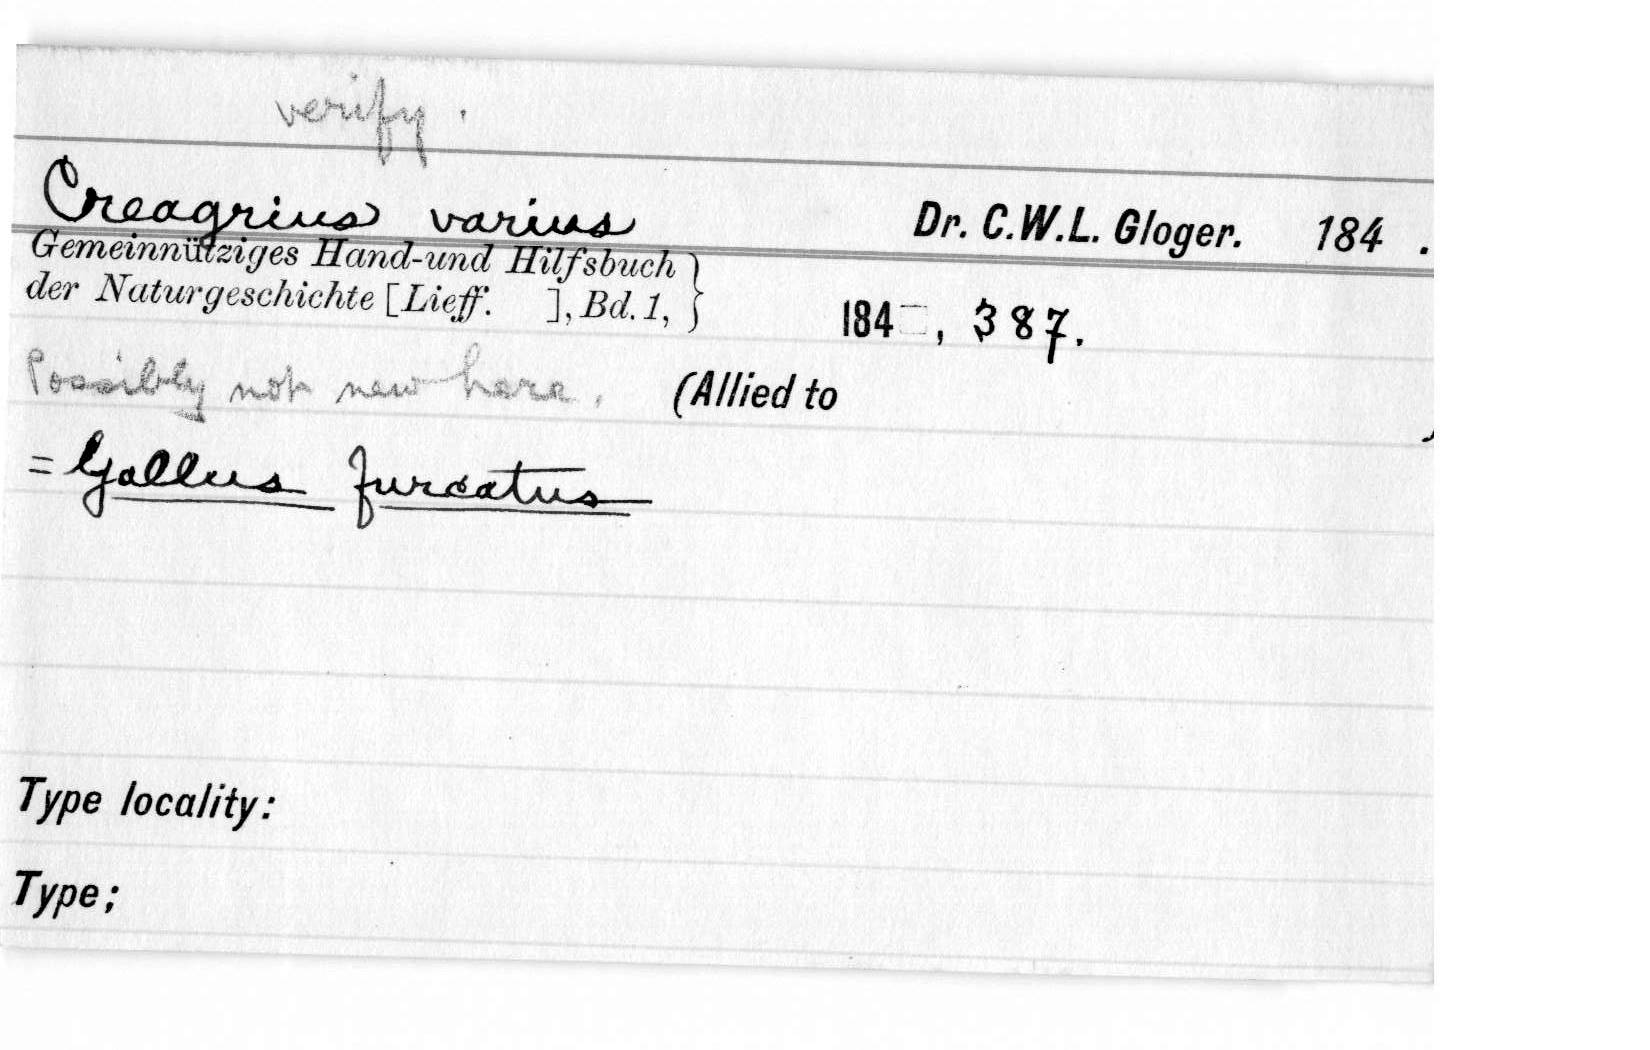 verify.
Creagrius varius Dr. C.W.L. Gloger. 184 .
Gemeinnütziges Hand-und Hilfsbuch }
der Naturgeschichte [Lieff. ], Bd. 1, } 184 , 387.
Possibly not new here. (Allied to )
= Gallus furcatus
Type locality:
Type;